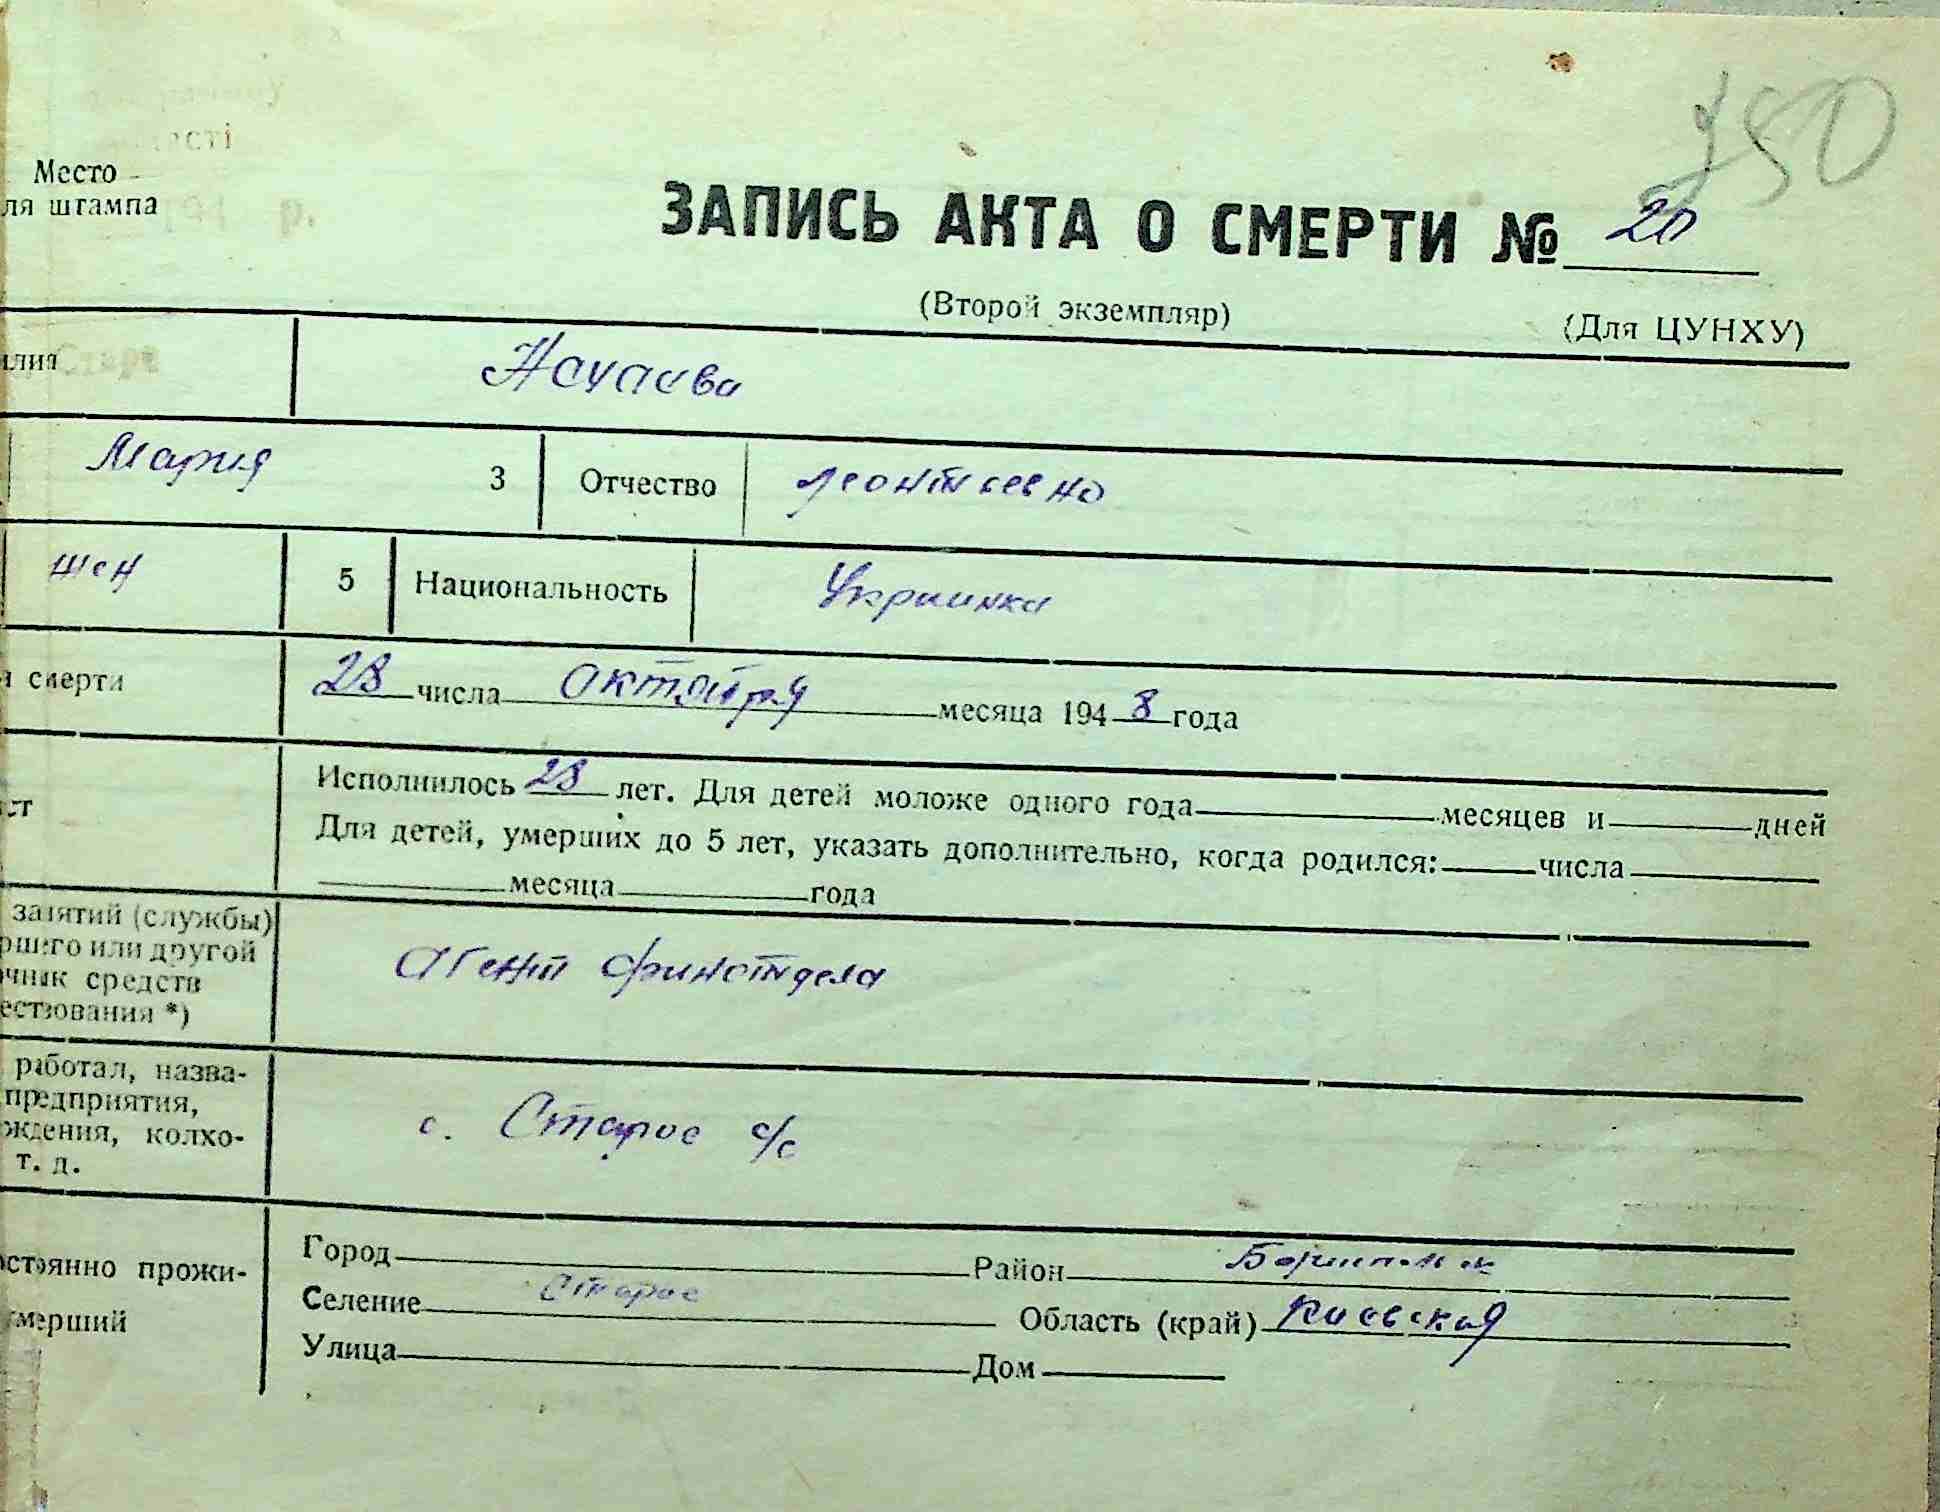 750
Место
ля штампа
р.
ЗАПИСЬ АКТА О СМЕРТИ № 20
(Второй экземпляр)
(Для ЦУНХУ)
илия
Мария 3 Отчество Леонтьевна
жен 5 Национальность Украинка
я смерти 28 числа октября месяца 1948 года
ст Исполнилось 28 лет. Для детей моложе одного года месяцев и дней
Для детей, умерших до 5 лет, указать дополнительно, когда родился: числа
месяца года
занятий (службы)
ршего или другой
очник средств
ествования *)
Агент финотдела
работал, назва-
предприятия,
ждения, колхо-
т. д.
с. Старое с/с
остоянно прожи-
умерший
Город Район
Селение Старое Область (край) Киевская
Улица Дом